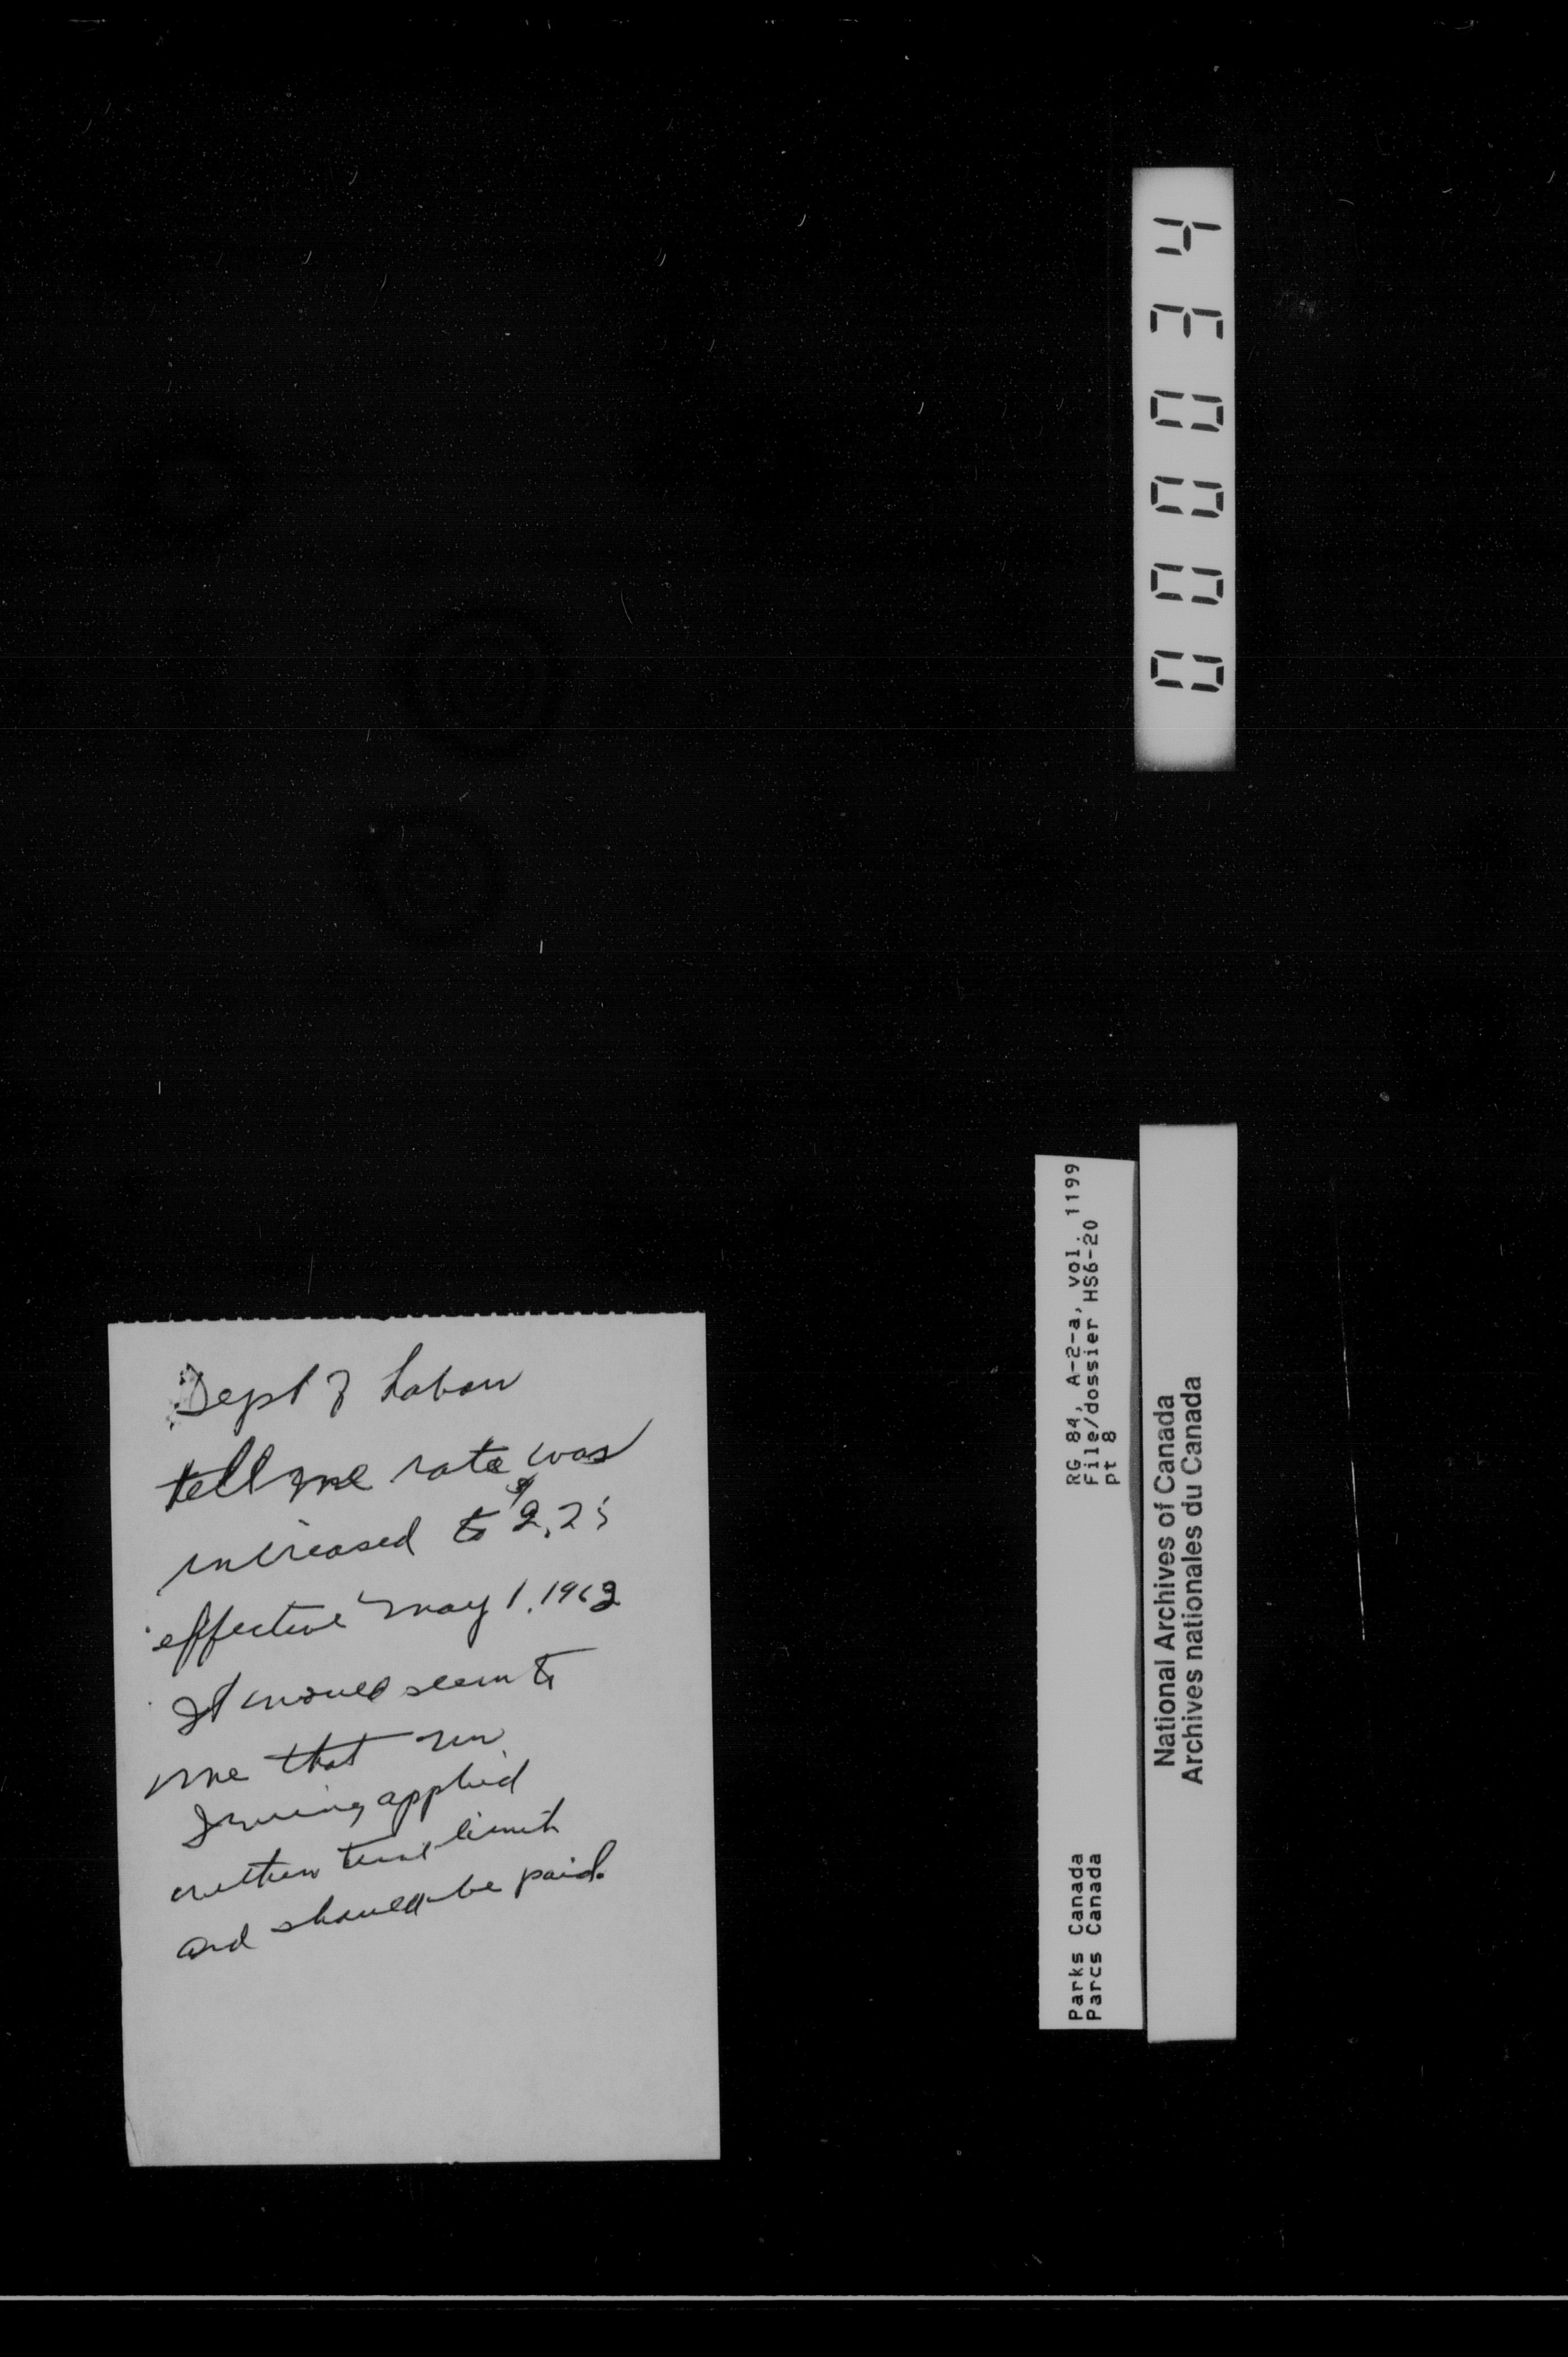 Dept of Labour
tell me rate was
increased to $2.25
effective May 1, 1963
It would seem to
me that
Irving applied
within time limit
and should be paid.
000034
RG 84, A-2-a, vol. 1199
File/dossier HS6-20
pt 8
Parks Canada
Parcs Canada
National Archives of Canada
Archives nationales du Canada